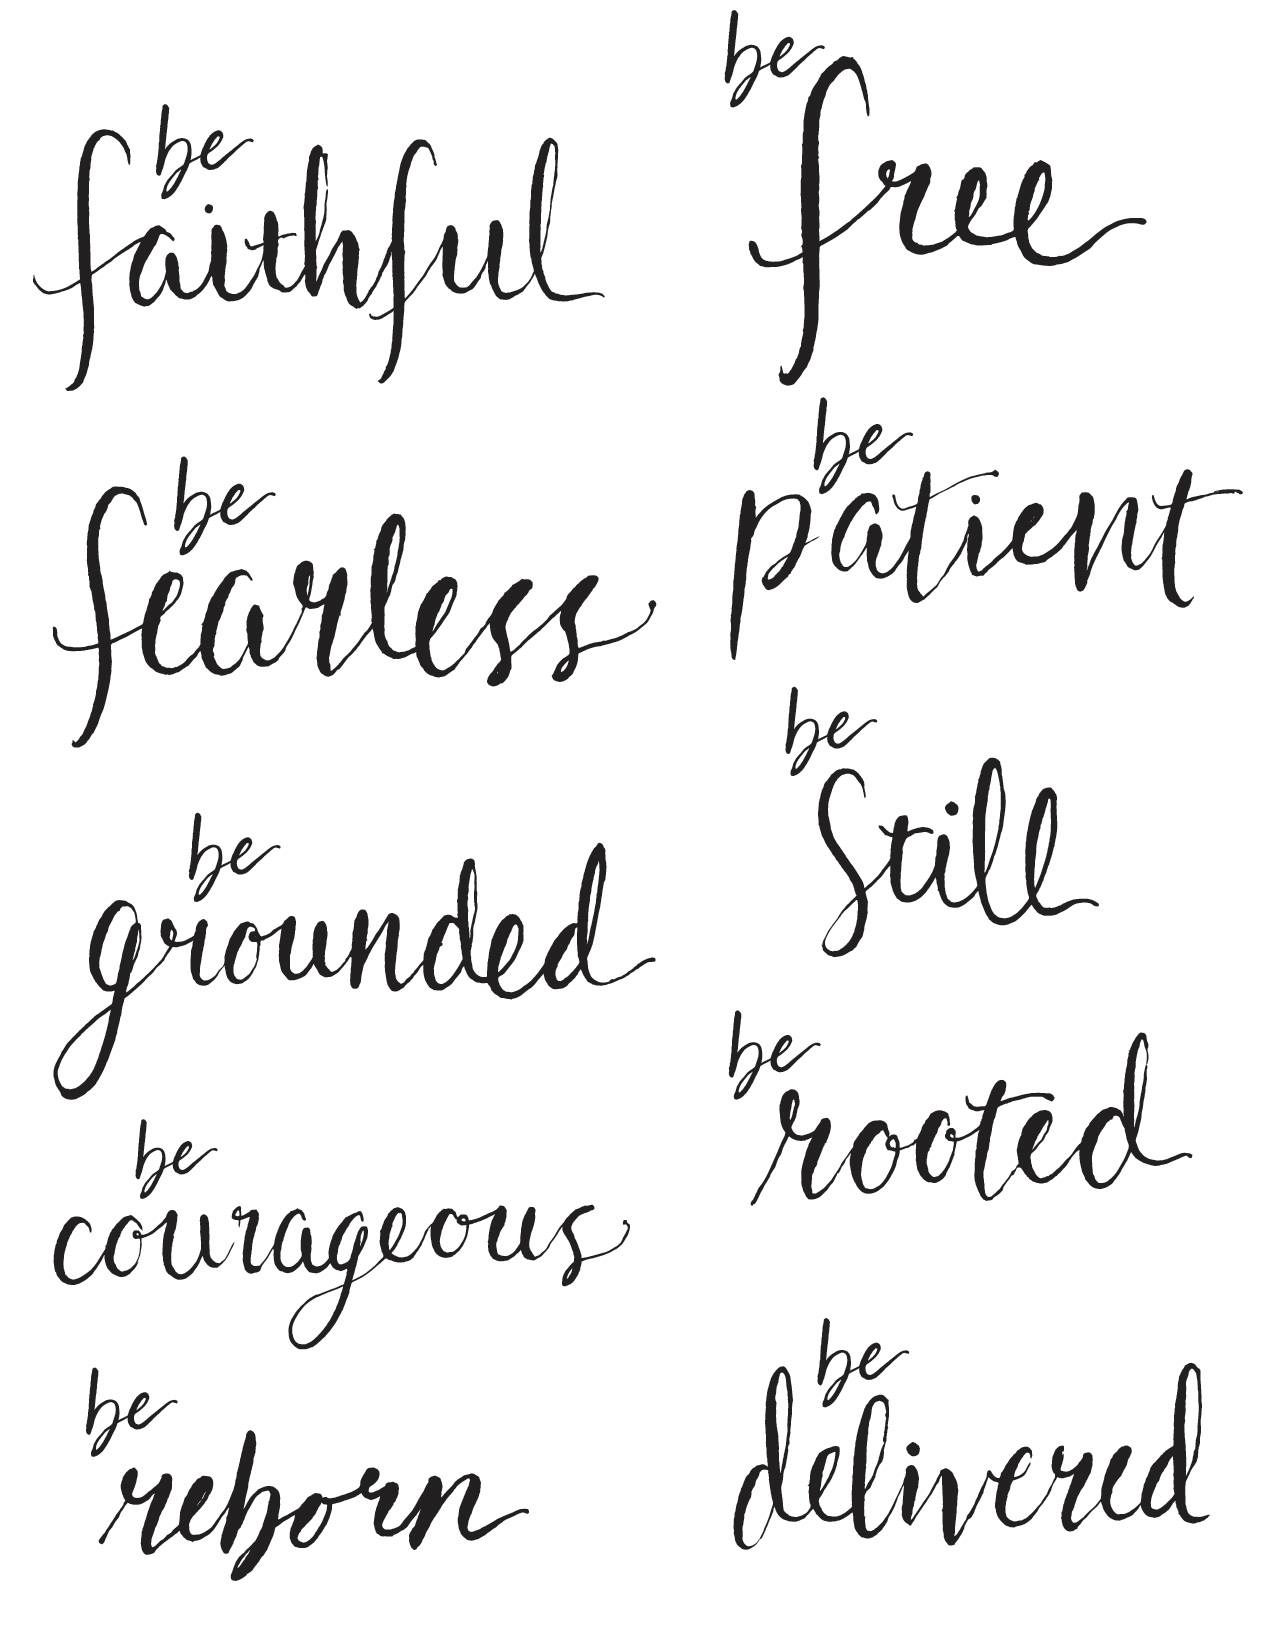 be
faithful
be
fearless
be
grounded
be
courageous
be
reborn
be
free
be
patient
be
still
be
rooted
be
delivered